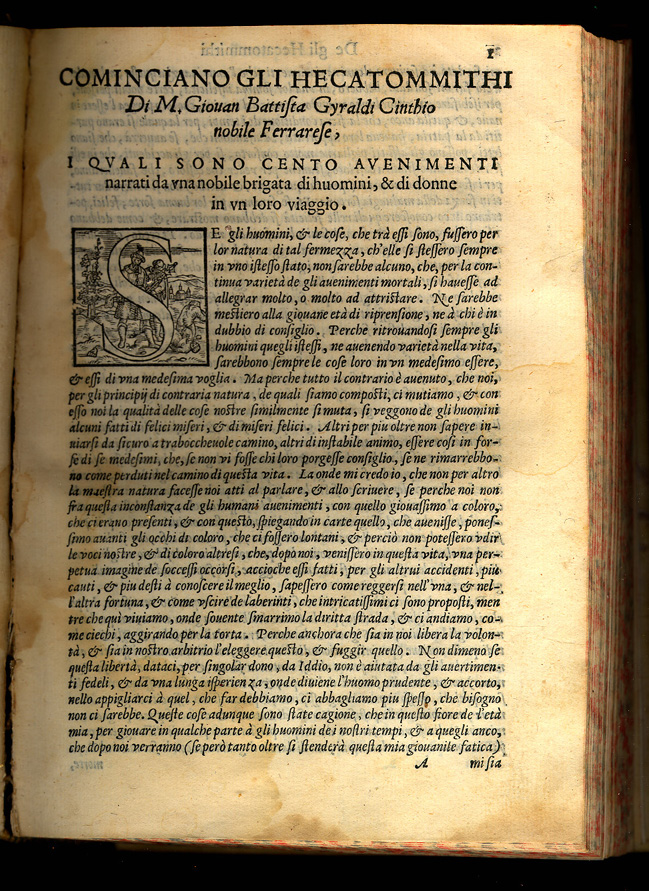 1
COMINCIANO GLI HECATOMMITHI
Di M. Giouan Battista Gyraldi Cinthio
nobile Ferrarese,
I QVALI SONO CENTO AVENIMENTI
narrati da vna nobile brigata di huomini, & di donne
in vn loro viaggio.
SE gli huomini, & le cose, che trà essi sono, fussero per
lor natura di tal fermezza, ch'elle si stessero sempre
in vno istesso stato, non sarebbe alcuno, che, per la con-
tinua varietà de gli auenimenti mortali, si hauesse ad
allegrar molto, o molto ad attristare. Ne sarebbe
mestiero alla giouane età di riprensione, ne à chi è in
dubbio di consiglio. Perche ritrouandosi sempre gli
huomini quegli istessi, ne auenendo varietà nella vita,
sarebbono sempre le cose loro in vn medesimo essere,
& essi di vna medesima voglia. Ma perche tutto il contrario è auenuto, che noi,
per gli principij di contraria natura, de quali siamo composti, ci mutiamo, & con
esso noi la qualità delle cose nostre similmente si muta, si veggono de gli huomini
alcuni fatti di felici miseri, & di miseri felici. Altri per piu oltre non sapere in-
uiarsi da sicuro a traboccheuole camino, altri di instabile animo, essere cosi in for-
se di se medesimi, che, se non vi fosse chi loro porgesse consiglio, se ne rimarrebbo-
no come perduti nel camino di questa vita. La onde mi credo io, che non per altro
la maestra natura facesse noi atti al parlare, & allo scriuere, se perche noi non
fra questa inconstanza de gli humani auenimenti, con quello giouassimo a coloro,
che ci erano presenti, & con questo, spiegando in carte quello, che auenisse, pones-
simo auanti gli occhi di coloro, che ci fossero lontani, & perciò non potessero vdir
le voci nostre, & di coloro altresi, che, dopò noi, venissero in questa vita, vna per-
petua imagine de soccessi occorsi, accioche essi fatti, per gli altrui accidenti, piu
cauti, & piu desti à conoscere il meglio, sapessero come reggersi nell'vna, & nel-
l'altra fortuna, & come vscire de laberinti, che intricatissimi ci sono proposti, men
tre che quà viuiamo, onde souente smarrimo la diritta strada, & ci andiamo, co-
me ciechi, aggirando per la torta. Perche anchora che sia in noi libera la volon-
tà, & sia in nostro arbitrio l'eleggere questo, & fuggir quello. Non dimeno se
questa libertà, dataci, per singolar dono, da Iddio, non è aiutata da gli auertimen-
ti fedeli, & da vna lunga isperienza, onde diuiene l'huomo prudente, & accorto,
nello appigliarci à quel, che far debbiamo, ci abbagliamo piu spesso, che bisogno
non ci sarebbe. Queste cose adunque sono state cagione, che in questo fiore de l'età
mia, per giouare in qualche parte à gli huomini de i nostri tempi, & a quegli anco,
che dopo noi verranno (se però tanto oltre si stenderà questa mia giouanile fatica)
A mi sia